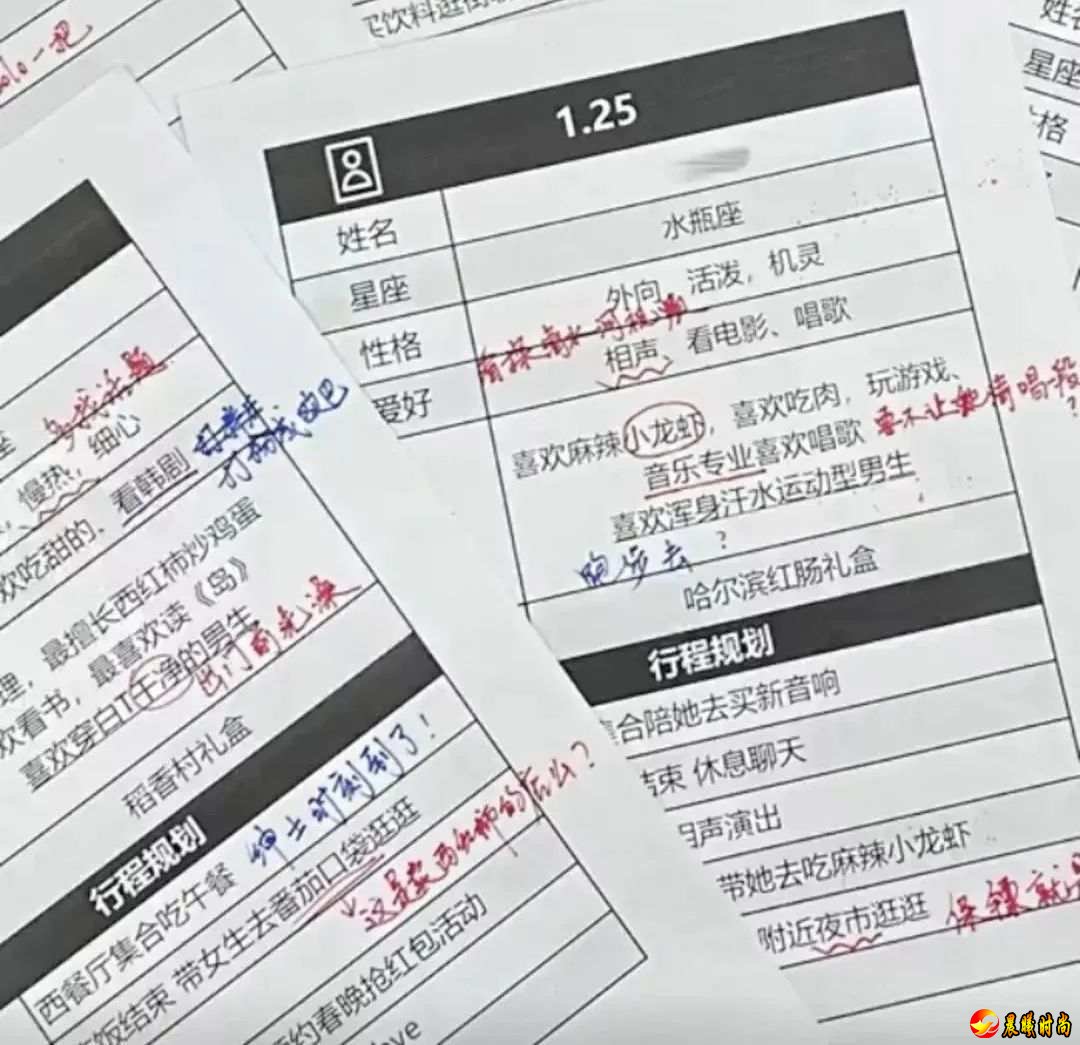 买饮料逛街
solo一把
姓名
星座
格
1.25
姓名
星座 水瓶座
性格 外向、活泼，机灵
爱好 相声、看电影、唱歌
喜欢麻辣小龙虾，喜欢吃肉，玩游戏、
音乐专业喜欢唱歌 要不让她倚唱一段?
喜欢浑身汗水运动型男生
跑步去?
哈尔滨红肠礼盒
行程规划
集合陪她去买新音响
结束 休息聊天
相声演出
带她去吃麻辣小龙虾
附近夜市逛逛 保镖就
座
慢热，细心
欢吃甜的、看韩剧
打扬成这吧
理，最擅长西红柿炒鸡蛋
欢看书，最喜欢读《岛》
喜欢穿白T干净的男生
出门前洗澡
稻香村礼盒
行程规划
西餐厅集合吃午餐 绅士时刻到了!
饭结束 带女生去番茄口袋逛逛
这是卖西红柿的店么?
约春晚抢红包活动
ove
晨曦时尚